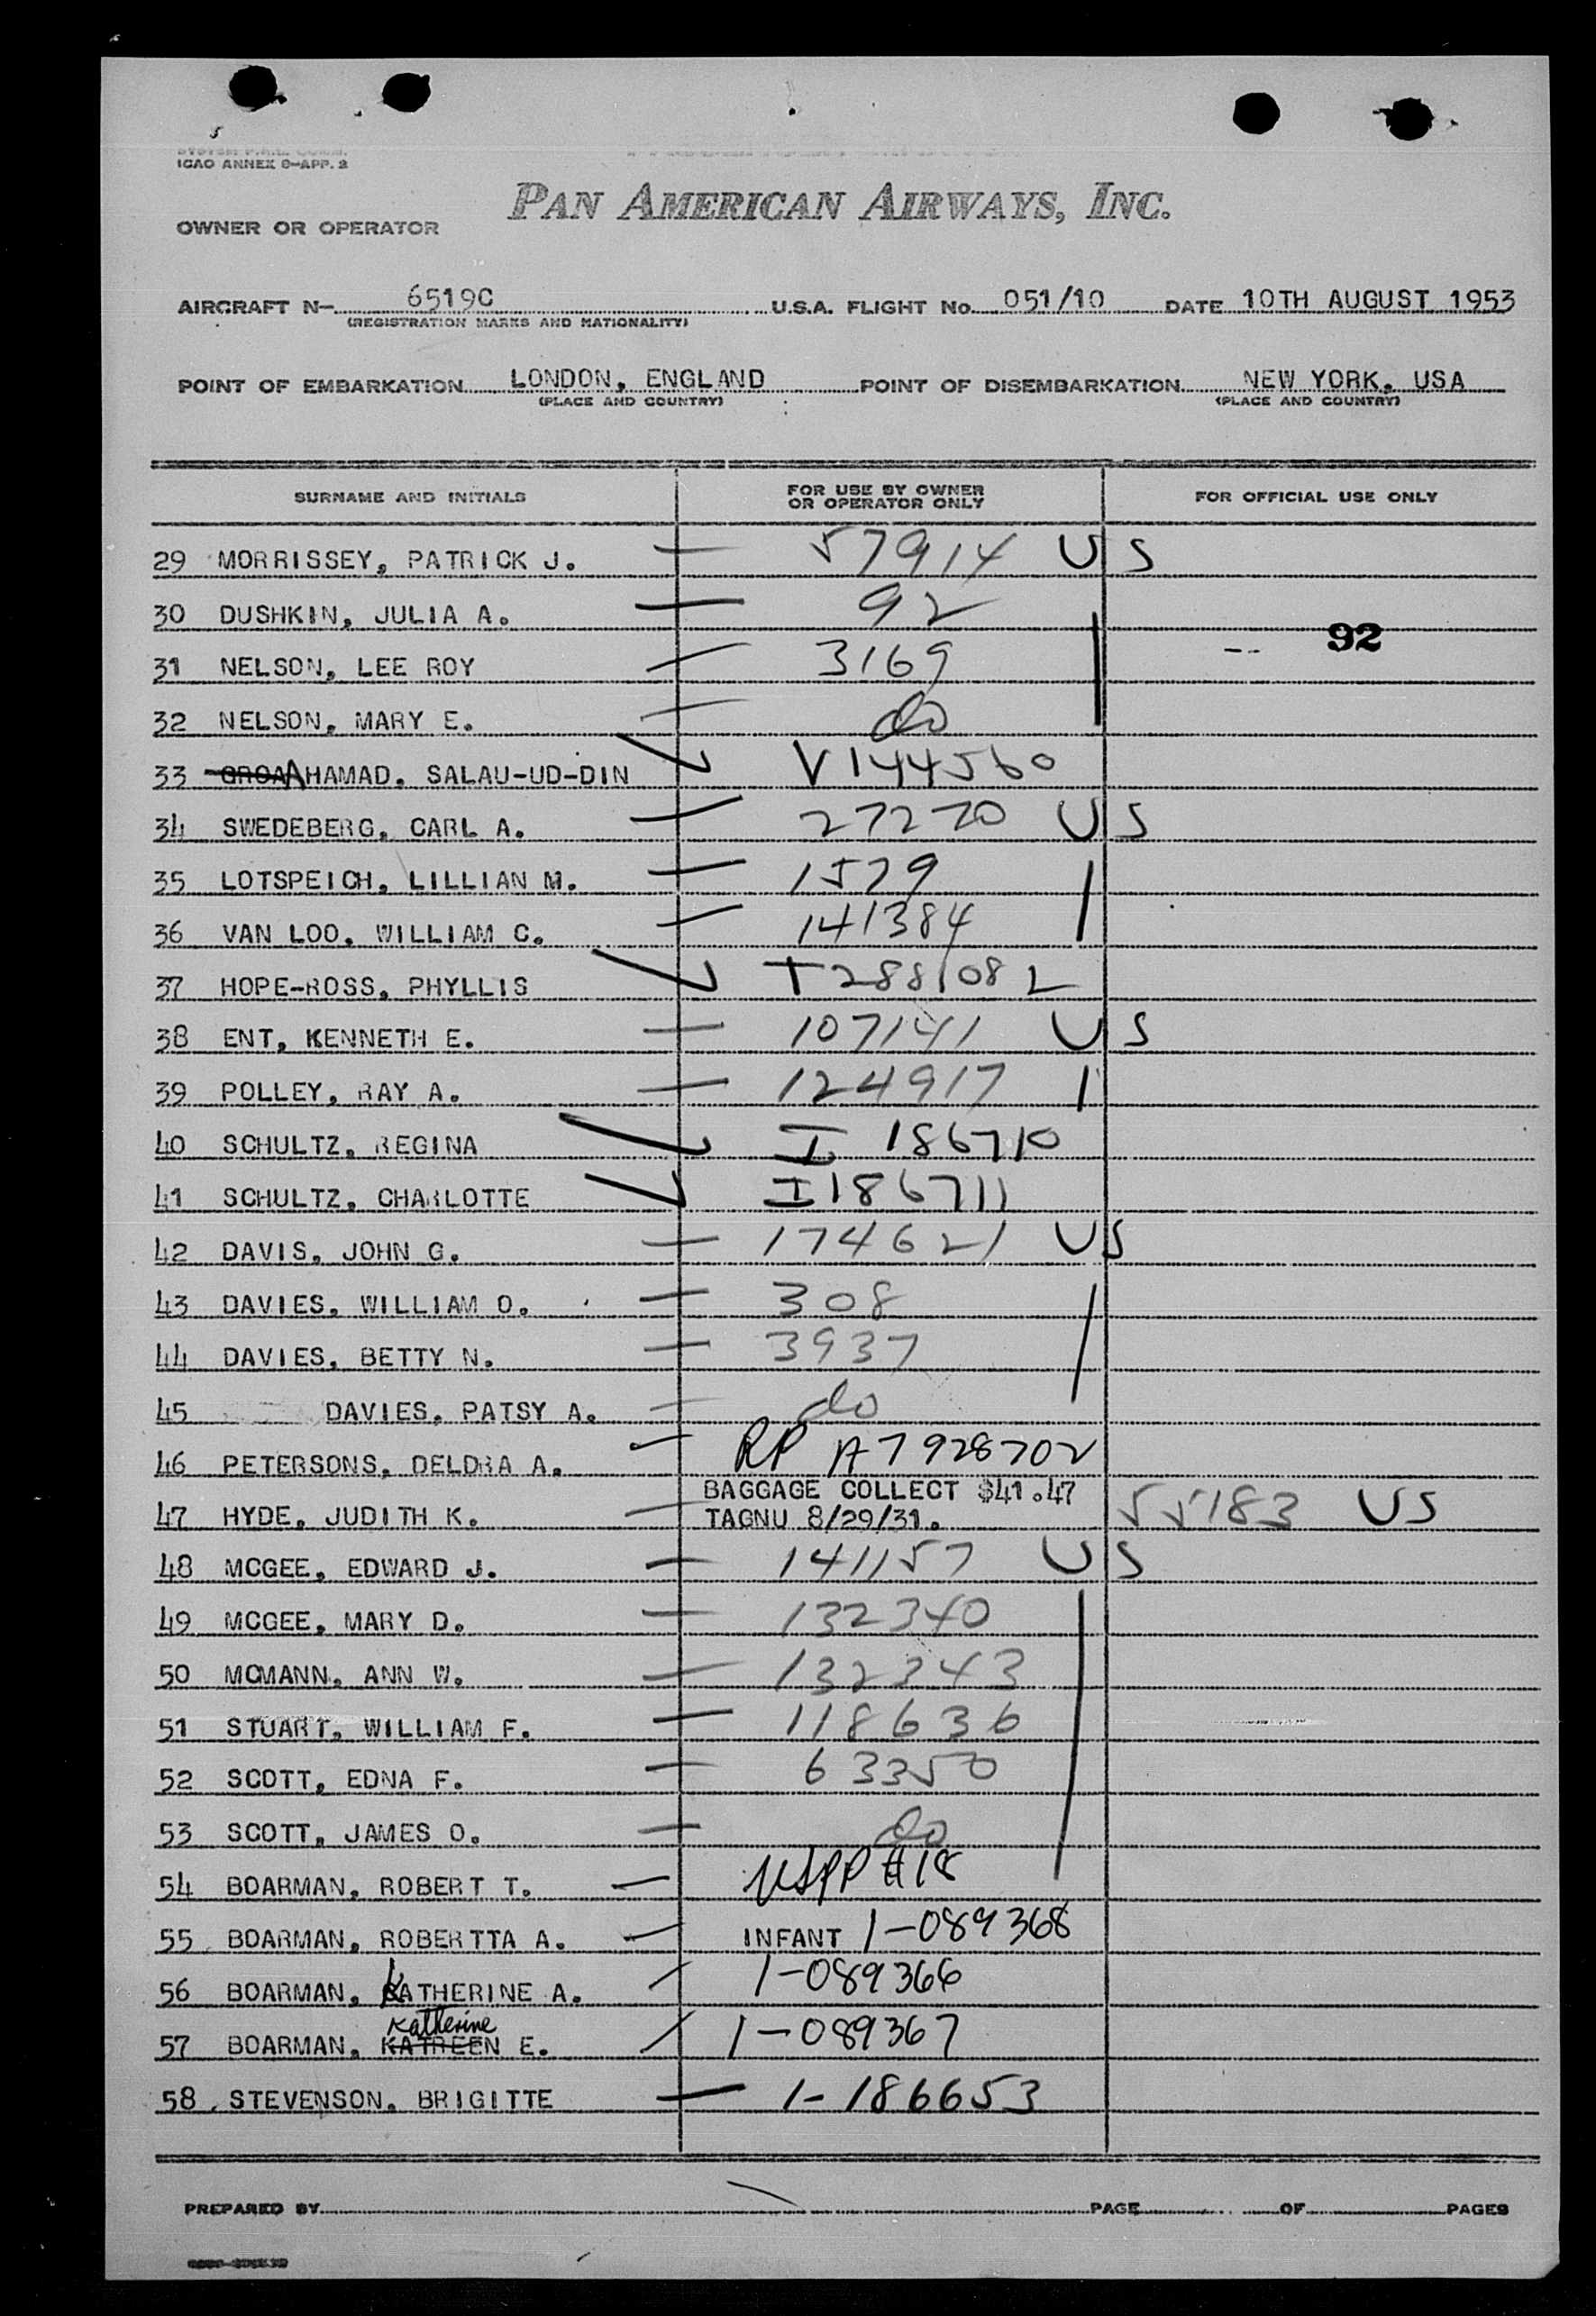 ICAO ANNEX 9-APP. 2
PAN AMERICAN AIRWAYS, INC.
OWNER OR OPERATOR
AIRCRAFT N- 6519C U.S.A. FLIGHT No. 051/10 DATE 10TH AUGUST 1953
(REGISTRATION MARKS AND NATIONALITY)
POINT OF EMBARKATION LONDON, ENGLAND POINT OF DISEMBARKATION NEW YORK, USA
(PLACE AND COUNTRY) (PLACE AND COUNTRY)
SURNAME AND INITIALS FOR USE BY OWNER OR OPERATOR ONLY FOR OFFICIAL USE ONLY
29 MORRISSEY, PATRICK J. — 57914 US
30 DUSHKIN, JULIA A. — 92
92
31 NELSON, LEE ROY — 3169
32 NELSON, MARY E. — do
33 AHAMAD, SALAU-UD-DIN V144560
34 SWEDEBERG, CARL A. — 27270 US
35 LOTSPEICH, LILLIAN M. — 1579
36 VAN LOO, WILLIAM C. — 141384
37 HOPE-ROSS, PHYLLIS T288108 L
38 ENT, KENNETH E. — 107141 US
39 POLLEY, RAY A. — 124917
40 SCHULTZ, REGINA I 186710
41 SCHULTZ, CHARLOTTE I186711
42 DAVIS, JOHN G. — 174621 US
43 DAVIES, WILLIAM O. — 308
44 DAVIES, BETTY N. — 3937
45 DAVIES, PATSY A. — do
46 PETERSONS, DELDRA A. — RP A7928702
47 HYDE, JUDITH K. — BAGGAGE COLLECT $41.47 55183 US
TAGNU 8/29/31.
48 MCGEE, EDWARD J. — 141157 US
49 MCGEE, MARY D. — 132340
50 MCMANN, ANN W. — 132343
51 STUART, WILLIAM F. — 118636
52 SCOTT, EDNA F. — 63350
53 SCOTT, JAMES O. — do
54 BOARMAN, ROBERT T. — USPP #18
55 BOARMAN, ROBERTTA A. — INFANT 1-089368
56 BOARMAN, KATHERINE A. 1-089366
Katherine
57 BOARMAN, KATREEN E. 1-089367
58 STEVENSON, BRIGITTE — 1-186653
PREPARED BY PAGE OF PAGES